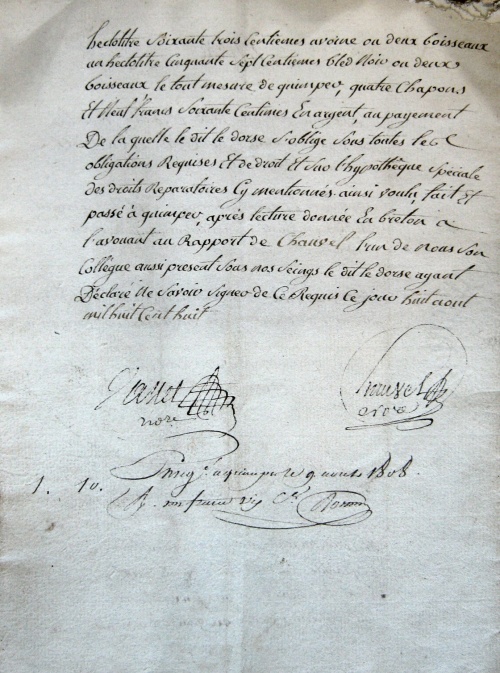 hectolitre Soixante trois Centiemes avoine ou deux boisseaux
un hectolitre Cinquante Sept Centiemes bled Noir ou deux
boisseaux le tout mesure de quimper, quatre Chapons
Et Neuf francs Soixante Centimes En argent, au payement
De la quelle le dit le dorse S'oblige Sous toutes les
obligations Requises Et de droit Et Sur l'hypothèque Spéciale
Des droits Reparatoires Cy mentionnés ainsi voulu, fait Et
passé à quimper, après lecture donnée En breton à
l'avouant au Rapport de Chauvel l'un de Nous Son
Collegue aussi present Sous nos Seings le dit le dorse ayant
Déclaré Ne Savoir Signer de Ce Requis Ce jour huit aout
mil huit Cent huit
Chauvel
nore
nore
Enreg. a quimper le 9 aout 1808
1. 10.
R. un franc dix Ces